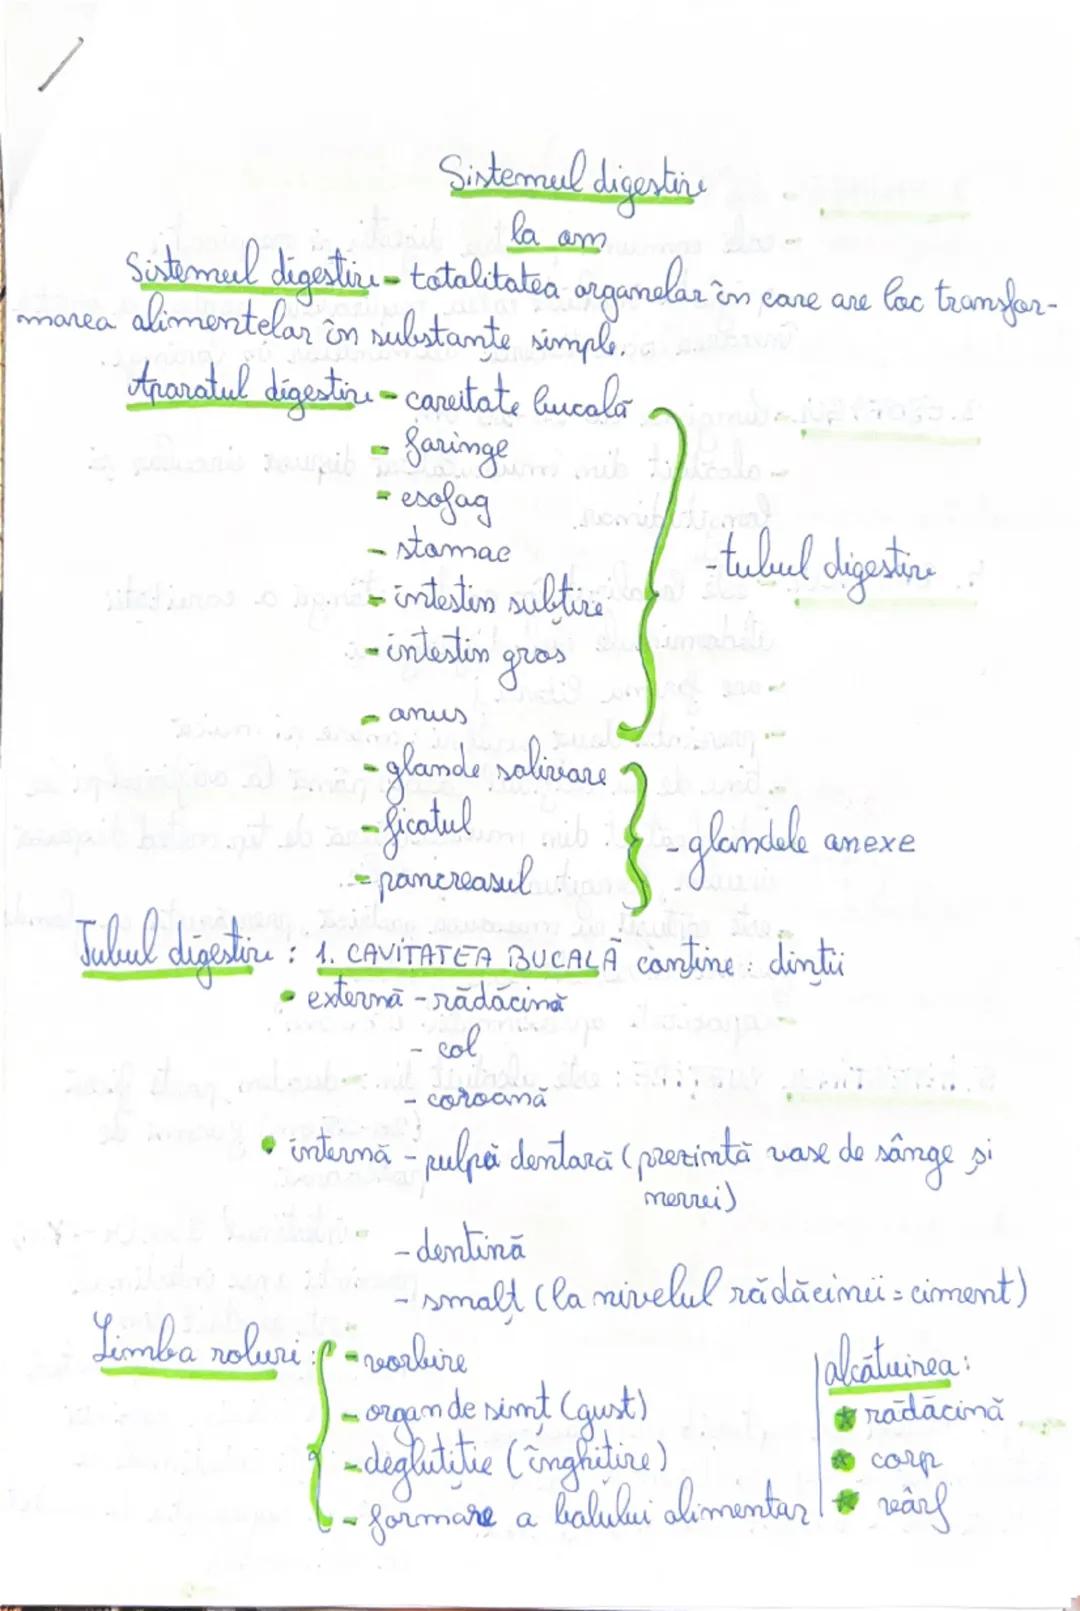 Sistemul digestiv
la om
Sistemul digestiv - totalitatea organelor în care are loc transfor-
marea alimentelor în substanțe simple.
Aparatul digestiv - cavitate bucală
- faringe
- esofag
- stomac
- intestin subțire
- intestin gros
- anus
- tubul digestiv
- glande salivare
- ficatul
- pancreasul
- glandele anexe
Tubul digestiv : 1. CAVITATEA BUCALĂ conține : dinții
• externă - rădăcină
- col
- coroană
• internă - pulpă dentară (prezintă vase de sânge și
nervi)
- dentină
- smalț (la nivelul rădăcinii = ciment)
Limba roluri : - vorbire
- organ de simț (gust)
- deglutiție (înghițire)
- formare a bolului alimentar
alcătuirea :
rădăcină
corp
vârf